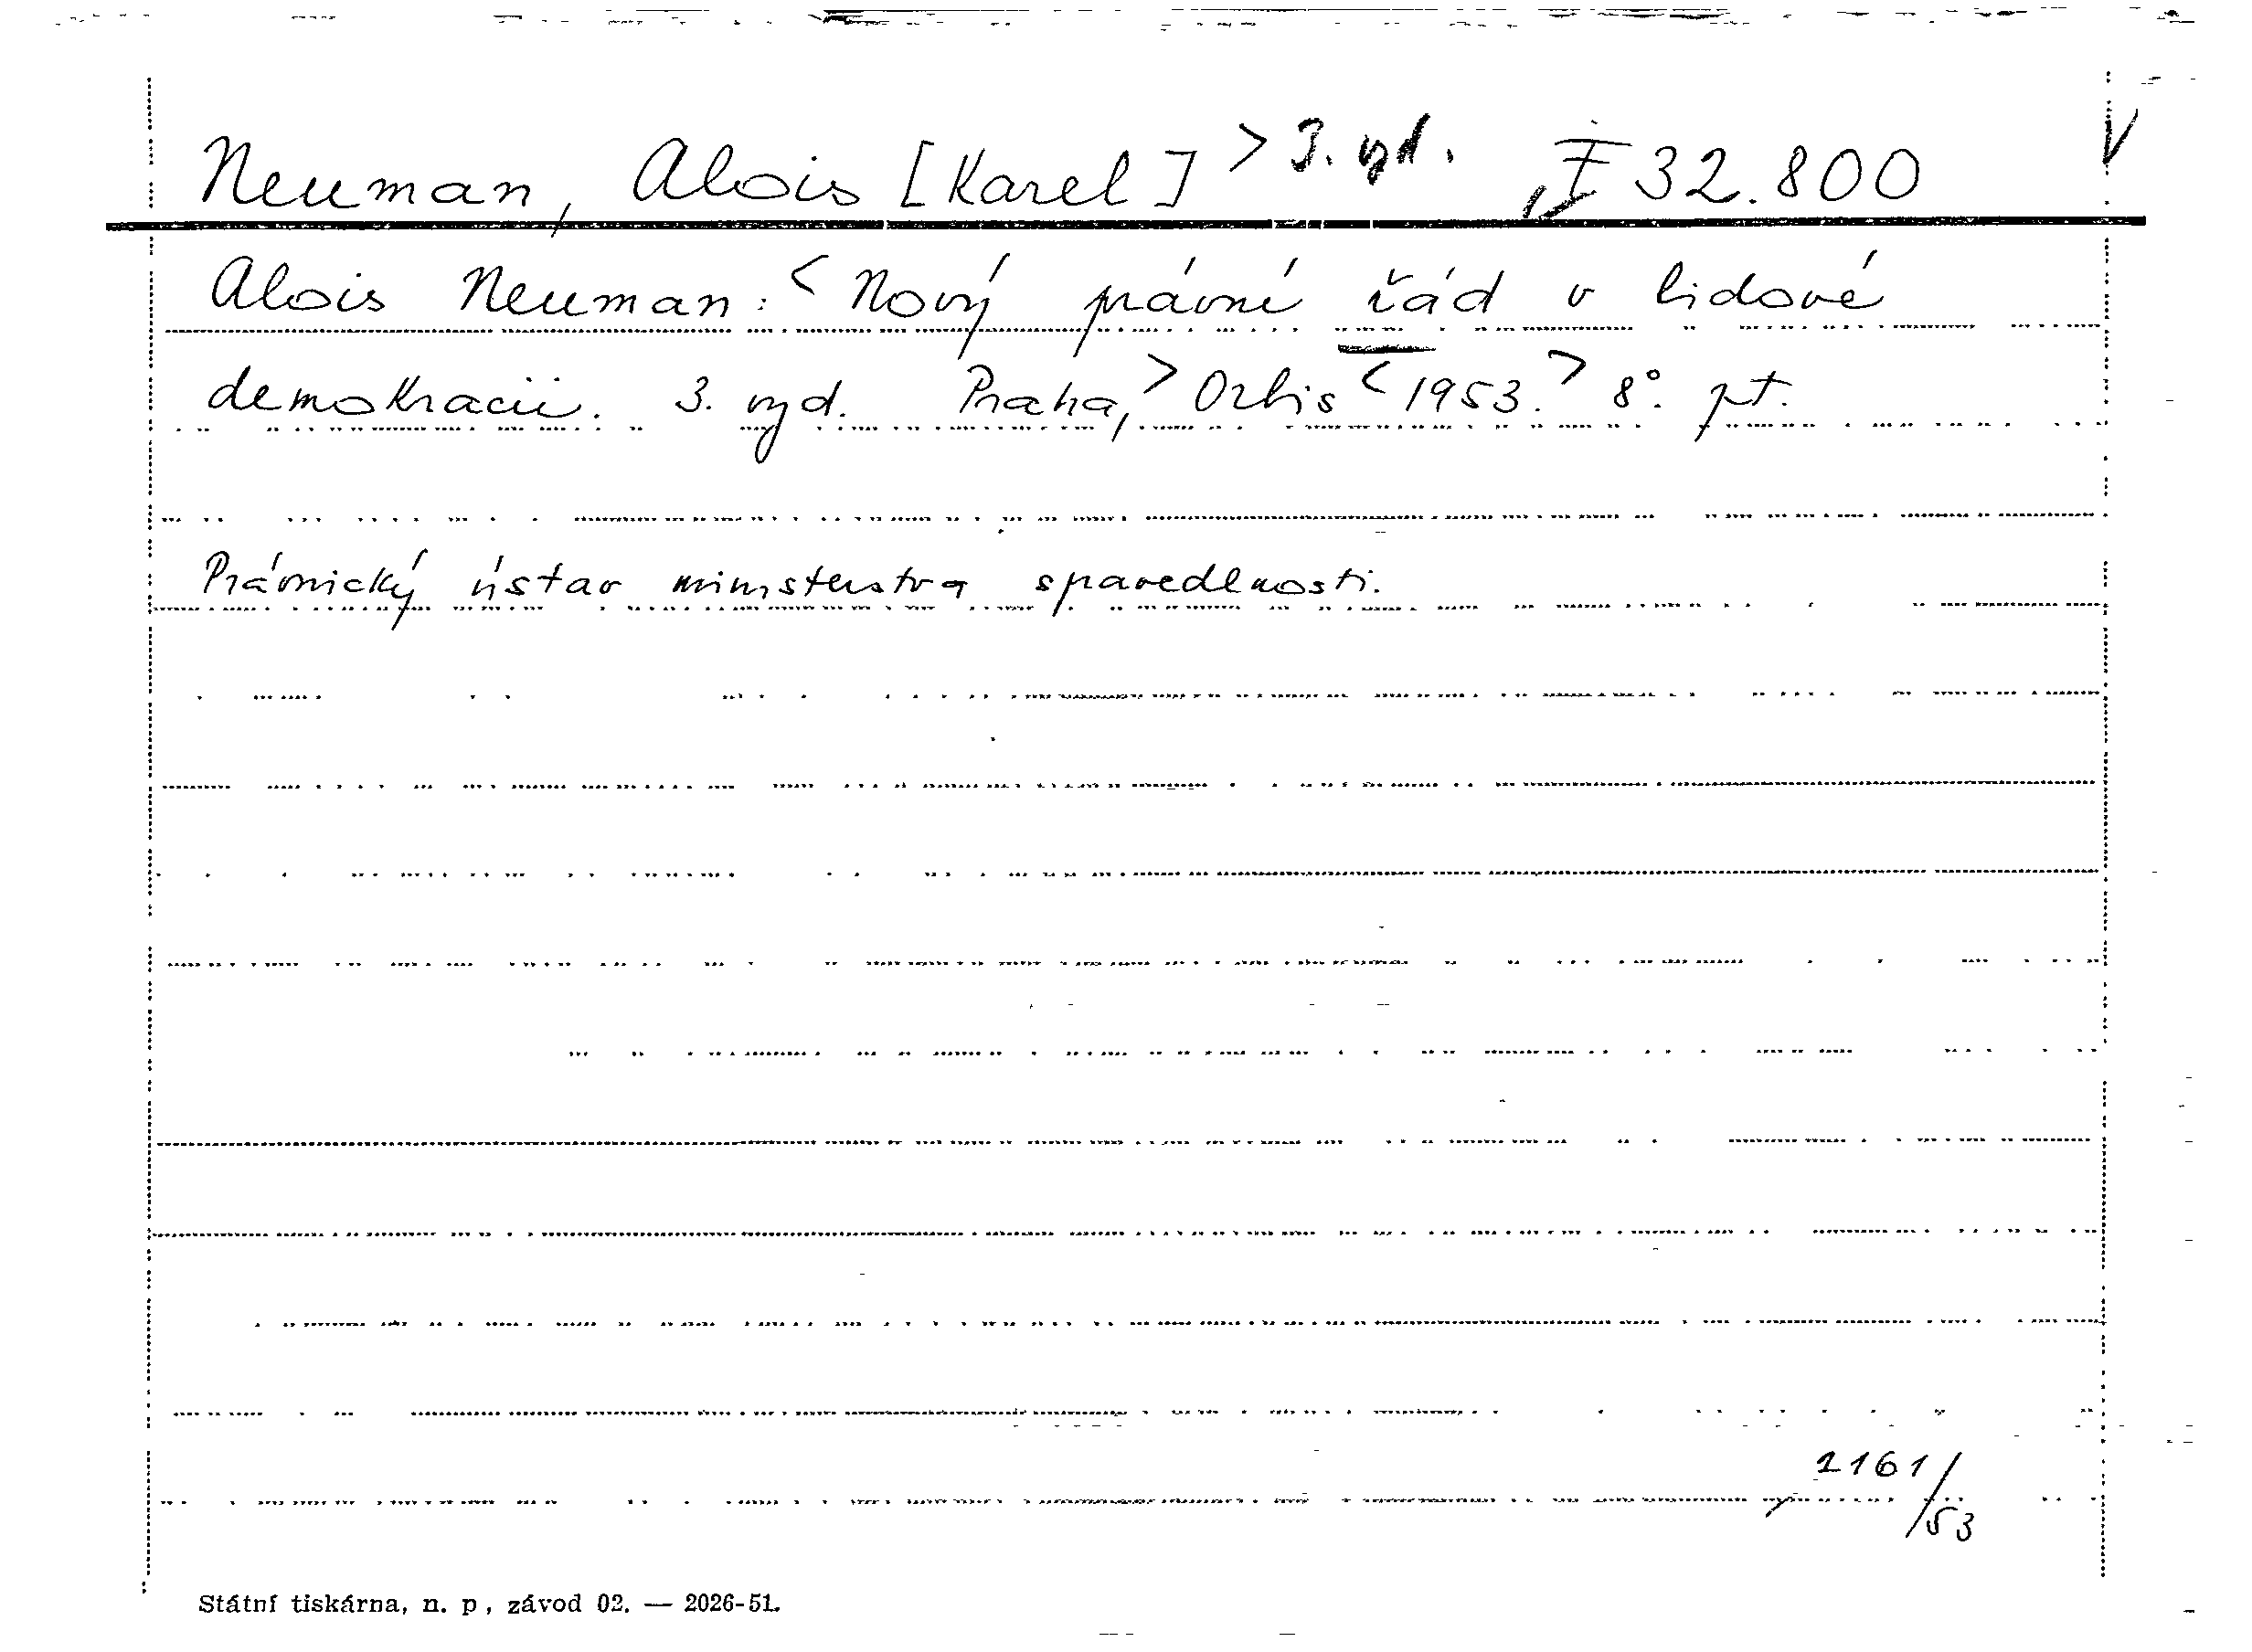 Neuman, Alois [Karel] > 3. vyd. I 32.800 V
Alois Neuman: < Nový právní řád v lidové
demokracii. 3. vyd. Praha, > Orbis < 1953. > 8°. pt.
Právnický ústav ministerstva spravedlnosti.
2161/53
Státní tiskárna, n. p, závod 02. — 2026-51.